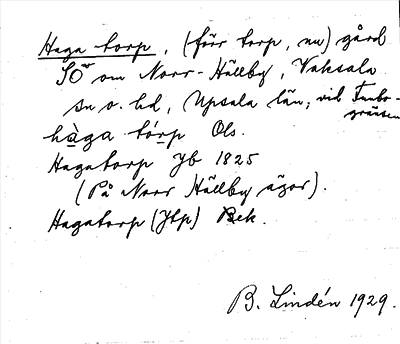 Haga torp, (förr torp, nu) gård
SÖ om Norr-Hällby, Vaksala
sn o. hd, Upsala län; vid Funbo-
gränsen
hàga tórp Ols.
Hagatorp Jb 1825
(På Norr Hällby ägor).
Hagatorp (Jtp) Bek.
B. Lindén 1929.